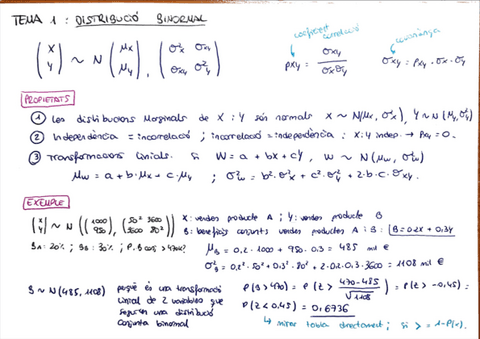 TEMA 1: DISTRIBUCIÓ BINORMAL
(X Y) ~ N (μx μy), (σ²x σxy σxy σ²y)
coeficient correlació
ρxy = σxy / σxσy
covariança
σxy = ρxy · σx · σy
PROPIETATS
① Les distribucions Marginals de X i Y són normals X ~ N(μx, σ²x), Y ~ N(μy, σ²y)
② Independència = incorrelació ; incorrelació = independència ; X i Y indep. → ρxy = 0.
③ Transformacions linials. Si W = a + bX + cY, W ~ N(μw, σ²w)
μw = a + b·μx + c·μy ; σ²w = b²·σ²x + c²·σ²y + 2·b·c·σxy.
EXEMPLE
(X Y) ~ N ((1000 950), (50² 3600 3600 80²)) X: vendes producte A ; Y: vendes producte B
B: beneficis conjunts vendes productes A i B: B = 0.2X + 0.3Y
BA: 20% ; BB: 30% ; P. B conj > 470k?
μB = 0.2 · 1000 + 950 · 0.3 = 485 mil €
σ²B = 0.2² · 50² + 0.3² · 80² + 2·0.2·0.3·3600 = 1108 mil €
B ~ N(485, 1108) perquè és una transformació
lineal de 2 variables que
segueixen una distribució
conjunta binormal
P(B > 470) = P(Z > 470-485 / √1108) = P(Z > -0,45) =
P(Z < 0,45) = 0,6736
↳ mirar tabla directament ; si > = 1-P(x).